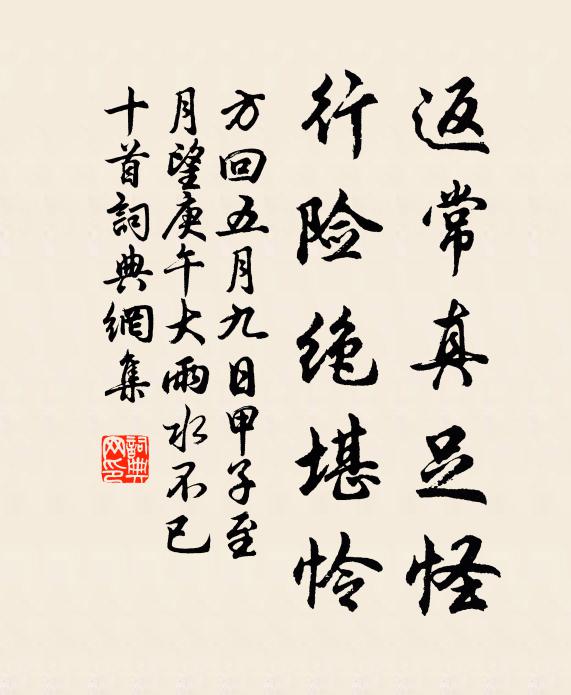 返常真足怪
行险绝堪怜
方回五月九日甲子至
月望庚午大雨水不已
十首詞典網集
詞典
网印